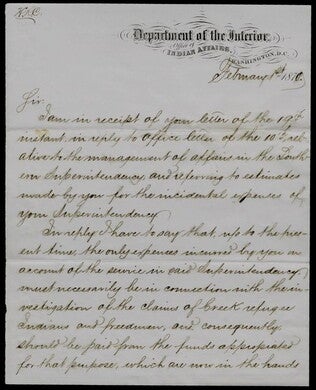 Department of the Interior,
Office of
INDIAN AFFAIRS,
WASHINGTON, D.C.
February 1st 1870
Sir,
I am in receipt of your letter of the 19th
instant in reply to office letter of the 10th rel-
ative to the management of affairs in the South-
ern Superintendency, and referring to estimates
made by you for the incidental expenses of
your Superintendency
In reply I have to say that, up to the pres-
ent time, the only expenses incurred by you on
account of the service in said Superintendency
must necessarily be in connection with the in-
vestigation of the claims of Creek refugee
Indians and freedmen, and consequently,
should be paid from the funds appropriated
for that purpose, which are now in the hands